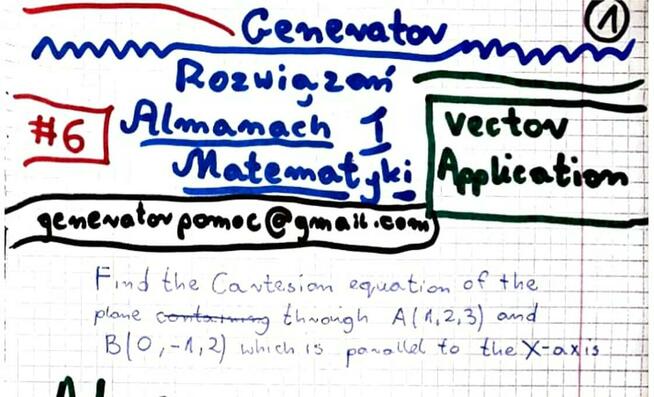 Generator
1
Rozwiązań
#6
Almanach 1
Matematyki
Vector
Application
generatorpomoc@gmail.com
Find the Cartesian equation of the
plane containing through A(1,2,3) and
B(0,-1,2) which is parallel to the X-axis